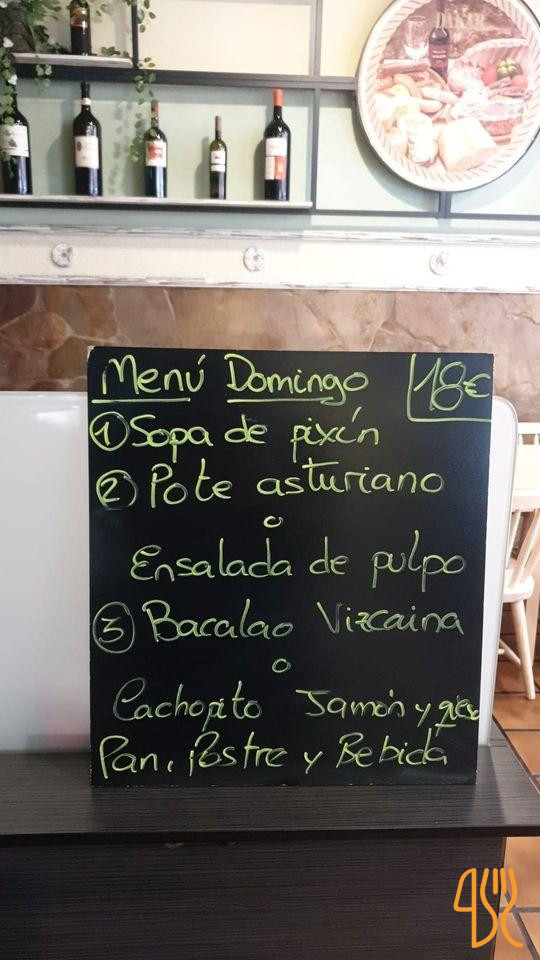 DAKAR
Menú Domingo 18€
① Sopa de pixín
② Pote asturiano
o
Ensalada de pulpo
③ Bacalao Vizcaina
o
Cachopito Jamón y queso
Pan, postre y Bebida